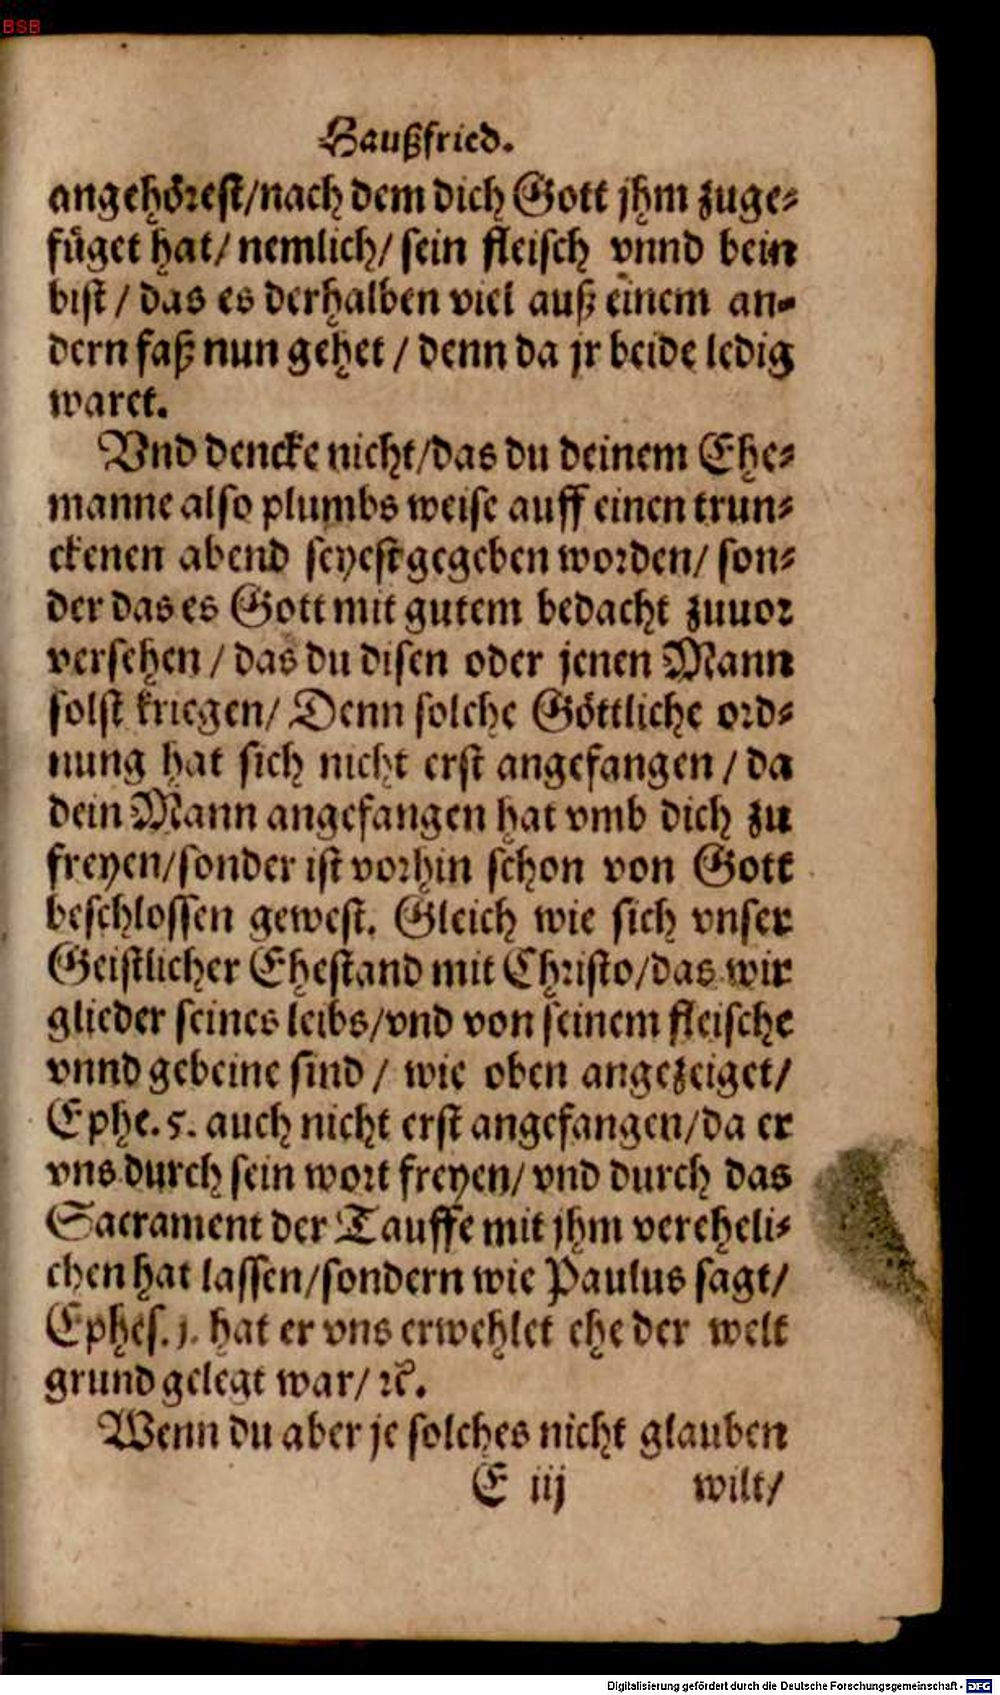 BSB
Haußfried.
angehörest/nach dem dich Gott jhm zuge⸗
füget hat/ nemlich/ sein fleisch vnnd bein
bist / das es derhalben viel auß einem an⸗
dern faß nun gehet / denn da jr beide ledig
waret.
Vnd dencke nicht/das du deinem Ehe⸗
manne also plumbs weise auff einen trun⸗
ckenen abend seyest gegeben worden/ son⸗
der das es Gott mit gutem bedacht zuuor
versehen / das du disen oder jenen Mann
solst kriegen/ Denn solche Göttliche ord⸗
nung hat sich nicht erst angefangen / da
dein Mann angefangen hat vmb dich zu
freyen/sonder ist vorhin schon von Gott
beschlossen gewest. Gleich wie sich vnser
Geistlicher Ehestand mit Christo/das wir
glieder seines leibs/vnd von seinem fleische
vnnd gebeine sind / wie oben angezeiget/
Ephe. 5. auch nicht erst angefangen/da er
vns durch sein wort freyen/ vnd durch das
Sacrament der Tauffe mit jhm vereheli⸗
chen hat lassen/sondern wie Paulus sagt/
Ephes. j. hat er vns erwehlet ehe der welt
grund gelegt war/ ꝛc.
Wenn du aber je solches nicht glauben
E iij wilt/
Digitalisierung gefördert durch die Deutsche Forschungsgemeinschaft - DFG